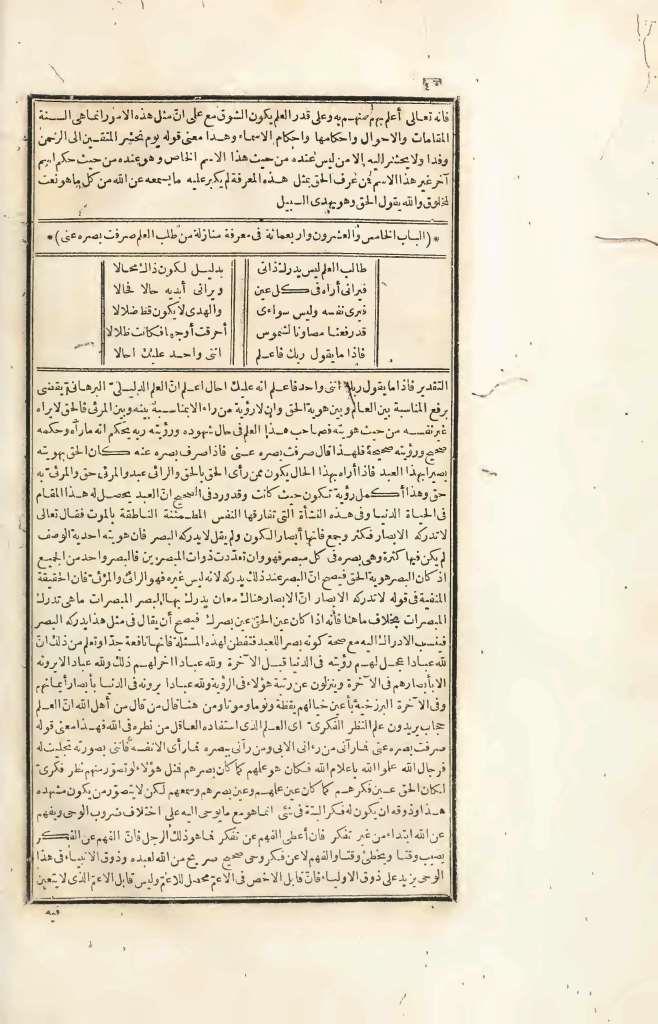 فانه تعالى أعلم بهم منهم به وعلى قدر العلم يكون الشوق مع على انّ مثل هذه الامور انما هى ألسنة
المقامات والاحوال واحكامها واحكام الاسماء وهذا معنى قوله يوم نحشر المتقين الى الرحمن
وفدا ولا يحشر اليه الا من ليس عنده من حيث هذا الاسم الخاص وهو عنده من حيث حكم اسم
آخر غير هذا الاسم فمن عرف الحق بمثل هذه المعرفة لم يكبر عليه ما يسمعه عن الله من كل ما هو نعت
لمخلوق والله يقول الحق وهو يهدى السبيل
* (الباب الخامس والعشرون واربعمائة فى معرفة منازلة من طلب العلم صرفت بصره عنى) *
طالب العلم ليس يدرك ذاتى بدليل لكون ذاك محالا
فيرانى أراه فى كل عين ويرانى أبديه حالا فحالا
فيرى نفسه وليس سوائى والهدى لا يكون قط ضلالا
قد رفعنا مصاونا لشموس أحرقت أوجها فكانت ظلالا
فاذا ما يقول ربك فاعلم اننى واحد عليك احالا
التقدير فاذا ما يقول ربك اننى واحد فاعلم انه عليك احال اعلم انّ العلم الدليلىّ البرهانىّ يقضى
برفع المناسبة بين العالم وبين هوية الحق وان لا رؤية من راء الا بمناسبة بينه وبين المرئى فالحق لا يراه
غير نفسه من حيث هويته فصاحب هذا العلم فى حال شهوده ورؤيته ربه يحكم انه ما رآه وحكمه
صحيح ورؤيته صحيحة فلهذا قال صرفت بصره عنى فاذا صرف بصره عنه كان الحق بهويته
بصيرا بهذا العبد فاذا أراه بهذا الحال يكون ممن رأى الحق بالحق والرائى عبد والمرئى حق والمرئى به
حق وهذا أكمل رؤية تكون حيث كانت وقد ورد فى الصحيح انّ العبد يحصل له هذا المقام
فى الحياة الدنيا وفى هذه النشأة التى تفارقها النفس المطمئنة الناطقة بالموت فقال تعالى
لا تدركه الابصار فكثر وجمع فانها أبصار الكون ولم يقل لا يدركه البصر فان هويته احدية الوصف
لم يكن فيها كثرة وهى بصره فى كل مبصر فهو وان تعدّدت ذوات المبصرين فالبصر واحد من الجميع
اذ كان البصر هوية الحق فيصح انّ البصر عند ذلك يدركه لانه ليس غيره فهو الرائى والمرئىّ فان الحقيقة
المنفية فى قوله لا تدركه الابصار انّ الابصار هناك معان يدرك بها البصر المبصرات ما هى تدرك
المبصرات بخلاف ما هنا فأنه اذا كان عين الحق عين بصرك فيصح أن يقال فى مثل هذا يدركه البصر
فينسب الادراك اليه مع صحة كونه بصرا للعبد فتفطن لهذه المسئلة فانها نافعة جدّا وتعلم من ذلك انّ
لله عبادا عجل لهم رؤيته فى الدنيا قبل الآخرة ولله عبادا أخر لهم ذلك ولله عبادا لا يرونه
الا بأبصارهم فى الآخرة وينزلون عن رتبة هؤلاء فى الرؤية ولله عبادا يرونه فى الدنيا بأبصار أيمانهم
وفى الآخرة البرزخية بأعين خيالهم يقظة ونوما وموتا ومن هنا قال من قال من أهل الله انّ العلم
حجاب يريدون علم النظر الفكرىّ اى العلم الذى استفاده العاقل من نظره فى الله فهذا معنى قوله
صرفت بصره عنى فما رآنى من رءانى الا بى ومن رآنى ببصره فما رأى الا نفسه فأننى بصورته تجليت له
فرجال الله علموا الله باعلام الله فكان هو علمهم كما كان بصرهم فمثل هؤلاء لو تصوّر منهم نظر فكرىّ
لكان الحق عين فكرهم كما كان عين علمهم وعين بصرهم وسمعهم لكن لا يتصوّر من يكون مشهده
هذا وذوقه ان يكون له فكر البتة فى شئى انما هو مع ما يوحى اليه على اختلاف ضروب الوحى ويفهم
عن الله ابتداء من غير تفكر فان أعطى الفهم عن تفكر فما هو ذلك الرجل فانّ الفهم عن الفكر
يصيب وقتا ويخطئ وقتا والفهم لا عن فكر وحى صحيح صريح من الله لعبده وذوق الانبياء فى هذا
الوحى يزيد على ذوق الاولياء فانّ قابل الاخص فى الاعم محصل للاعم وليس قابل الاعم الذى لا يتعين
فيه